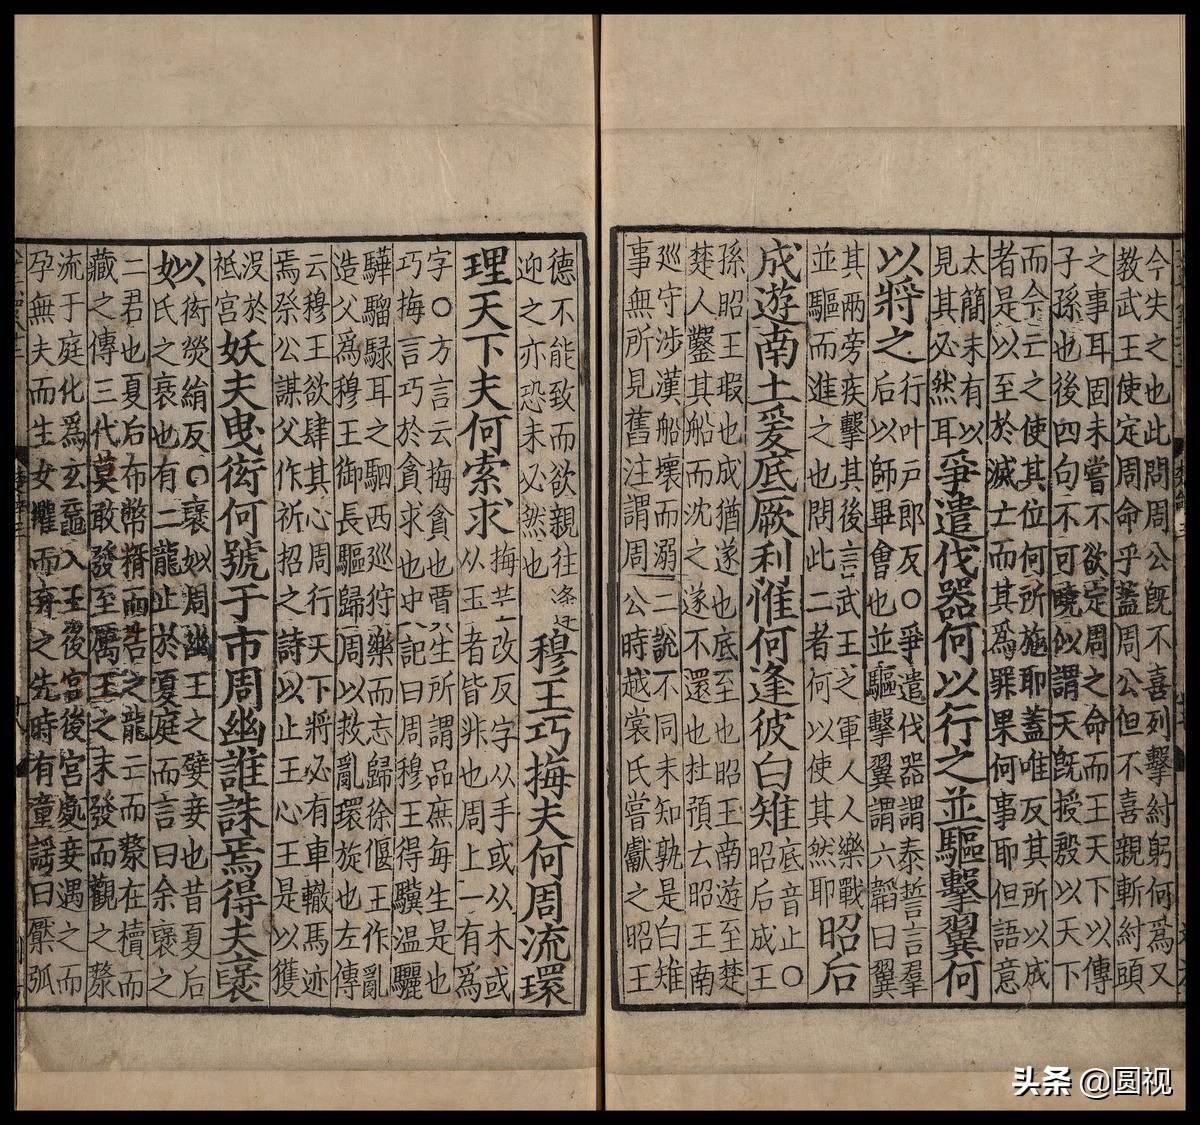 今失之也此問周公旣不喜列擊紂躬何爲又
教武王使定周命乎蓋周公但不喜親斬紂頭
之事耳固未嘗不欲定周之命而王天下以傳
子孫也後四句不可曉似謂天旣授殷以天下
而今亡之使其位何所施耶蓋唯反其所以成
者是以至於滅亡而其爲罪果何事耶但語意
太簡未有以
見其必然耳
爭遣伐器何以行之並驅擊翼何
以將之
行叶戸郎反○爭遣伐器謂泰誓言羣
后以師畢會也並驅擊翼謂六韜曰翼
其兩旁疾擊其後言武王之軍人人樂戰
並驅而進之也問此二者何以使其然耶
昭后
成遊南土爰底厥利惟何逢彼白雉
底音止○
昭后成王
孫昭王瑕也成猶遂也底至也昭王南遊至楚
楚人鑿其船而沈之遂不還也杜預云昭王南
巡守涉漢船壞而溺二說不同未知孰是白雉
事無所見舊注謂周公時越裳氏嘗獻之昭王
德不能致而欲親往
迎之亦恐未必然也
穆王巧梅夫何周流環
理天下夫何索求
梅共改反字从手或从木或
从玉者皆非也周上一有爲
字○方言云梅貪也賈生所謂品庶每生是也
巧梅言巧於貪求也史記曰周穆王得驥温驪
驊騮騄耳之駟西巡狩樂而忘歸徐偃王作亂
造父爲穆王御長驅歸周以救亂環旋也左傳
云穆王欲肆其心周行天下將必有車轍馬迹
焉祭公謀父作祈招之詩以止王心王是以獲
没於
祗宮
妖夫曳衒何號于市周幽誰誅焉得夫褒
姒
衒熒絹反○褒姒周幽王之嬖妾也昔夏后
氏之衰也有二龍止於夏庭而言曰余褒之
二君也夏后布幣糈而告之龍亡而漦在櫝而
藏之傳三代莫敢發至厲王之末發而觀之漦
流于庭化爲玄黿入王後宮後宮處妾遇之而
孕無夫而生女懼而弃之先時有童謡曰檿弧
头条 @圆视